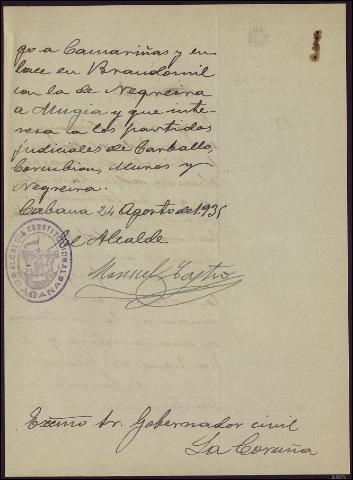 go a Camariñas y en
lace en Brandomil
con la de Negreira
a Mugia y que inte-
resa a los partidos
judiciales de Carballo,
Corcubion, Muros y
Negreira.
Cabana 24 Agosto de 1.935
El Alcalde
Manuel Castro
ALCALDIA CONSTITUCIONAL
CABANAS
Excmo Sr. Gobernador civil
La Coruña